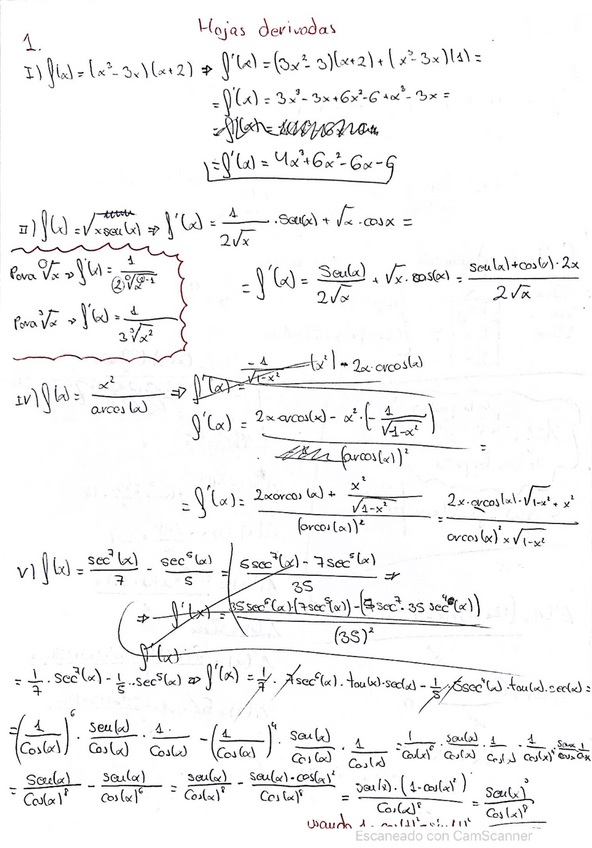 Hojas derivadas
1.
I) f(x) = (x³-3x)(x+2) ⇒ f'(x) = (3x²-3)(x+2) + (x³-3x)(1) =
= f'(x) = 3x³-3x+6x²-6+x³-3x =
= f'(x) = 4x³+6x²-6x-6
II) f(x) = √x sen(x) ⇒ f'(x) = 1/2√x · sen(x) + √x · cosx =
Para ⁿ√x ⇒ f'(x) = 1
Para ³√x ⇒ f'(x) = 1/3³√x²
= f'(x) = sen(x)/2√x + √x · cos(x) = sen(x)+cos(x)·2x/2√x
IV) f(x) = x²/arcos(x) ⇒ f'(x) = -1/√1-x² (x²) - 2x·arcos(x)
f'(x) = 2x·arcos(x) - x²·(-1/√1-x²)/(arcos(x))² =
= f'(x) = 2xarcos(x) + x²/√1-x²/(arcos(x))² = 2x·arcos(x)·√1-x² + x²/arcos(x)²×√1-x²
V) f(x) = sec⁷(x)/7 - sec⁵(x)/5 = 5sec⁷(x) - 7sec⁵(x)/35 ⇒
⇒ f'(x) = 35sec⁶(x)·(7sec⁵(x)) - (7sec⁷·35sec⁴(x))/(35)²
f'(x)
= 1/7 · sec⁷(x) - 1/5 · sec⁵(x) ⇒ f'(x) = 1/7 · 7sec⁶(x) · tan(x)·sec(x) - 1/5 · 5sec⁴(x) · tan(x)·sec(x) =
= (1/Cos(x))⁶ · sen(x)/Cos(x) · 1/Cos(x) - (1/Cos(x))⁴ · sen(x)/Cos(x) · 1/Cos(x) = 1/Cos(x)⁶ · sen(x)/Cos(x) · 1/Cos(x) · 1/Cos(x)⁴
= Sen(x)/Cos(x)⁸ - sen(x)/Cos(x)⁶ = sen(x)/Cos(x)⁸ - sen(x)·cos(x)²/Cos(x)⁸ = sen(x)·(1-cos(x)²)/Cos(x)⁸ = Sen(x)³/Cos(x)⁸
usando
Escaneado con CamScanner